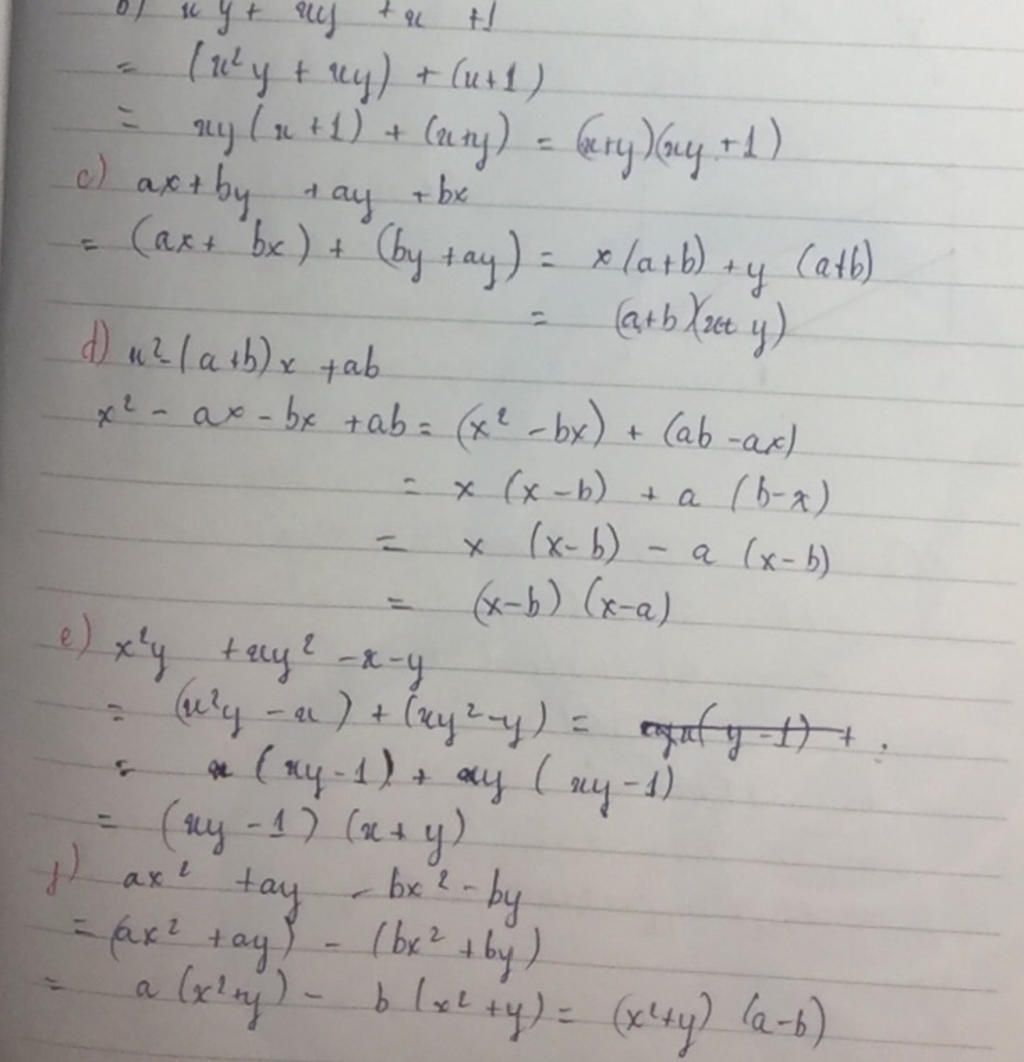 b) x²y + xy + x + 1
= (x²y + xy) + (x+1)
= xy (x + 1) + (x+y) = (x+y)(xy + 1)
c) ax + by + ay + bx
= (ax + bx) + (by + ay) = x (a+b) + y (a+b)
= (a+b)(x+y)
d) x² - (a+b)x + ab
x² - ax - bx + ab = (x² - bx) + (ab - ax)
= x (x - b) + a (b - x)
= x (x - b) - a (x - b)
= (x - b) (x - a)
e) x²y + xy² - x - y
= (x²y - x) + (xy² - y) =
= x (xy - 1) + xy (xy - 1)
= (xy - 1) (x + y)
f) ax² + ay - bx² - by
= (ax² + ay) - (bx² + by)
= a (x² + y) - b (x² + y) = (x² + y) (a - b)